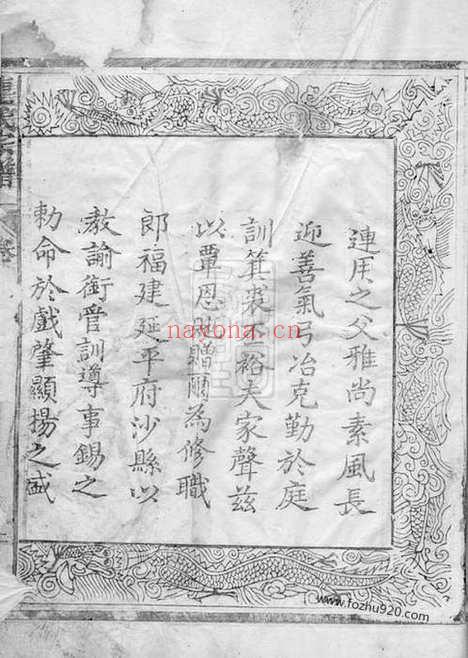 連庚之父雅尚素風長
迎善氣弓冶克勤於庭
訓箕裘丕裕夫家聲茲
以覃恩貤贈爾為修職
郎福建延平府沙縣以
教諭銜管訓導事錫之
勅命於戲肇顯揚之盛
氏宗譜
卷
nayona.cn
www.fozhu920.com